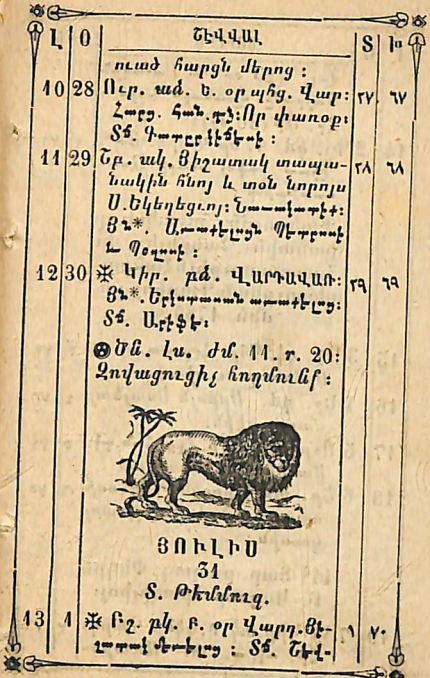 Լ Օ ՇԷՎՎԱԼ Տ Խ
ուած հարցն մերոց :
10 28 Ուր. աձ. Ե. օր պհց. Վար: ٢٧ ٦٧
Հարց. Հան. գչ: Որ փառօք:
Տճ.
11 29 Շբ. ակ. Յիշատակ տապա- ٢٨ ٦٨
նակին հնոյ և տօն նորոյս
Ս. Եկեղեցւոյ: Նաւակատիք:
Յն*. Առաքելոցն Պետրոսի
և Պօղոսի :
12 30 ※ Կիր. բձ. ՎԱՐԴԱՎԱՌ: ٢٩ ٦٩
Յն*. Երկոտասան առաքելոց:
Տճ. Արէֆէ:
Ծն. Լս. Ժմ. 11. ր. 20:
Զովացուցիչ հողմունք :
ՅՈՒԼԻՍ
31
Տ. Թէմմուզ.
13 1 ※ Բշ. բկ. Բ. օր Վարդ. Յի- ١ ٧٠
շատակ մեռելոց : Տճ. Շէվ-